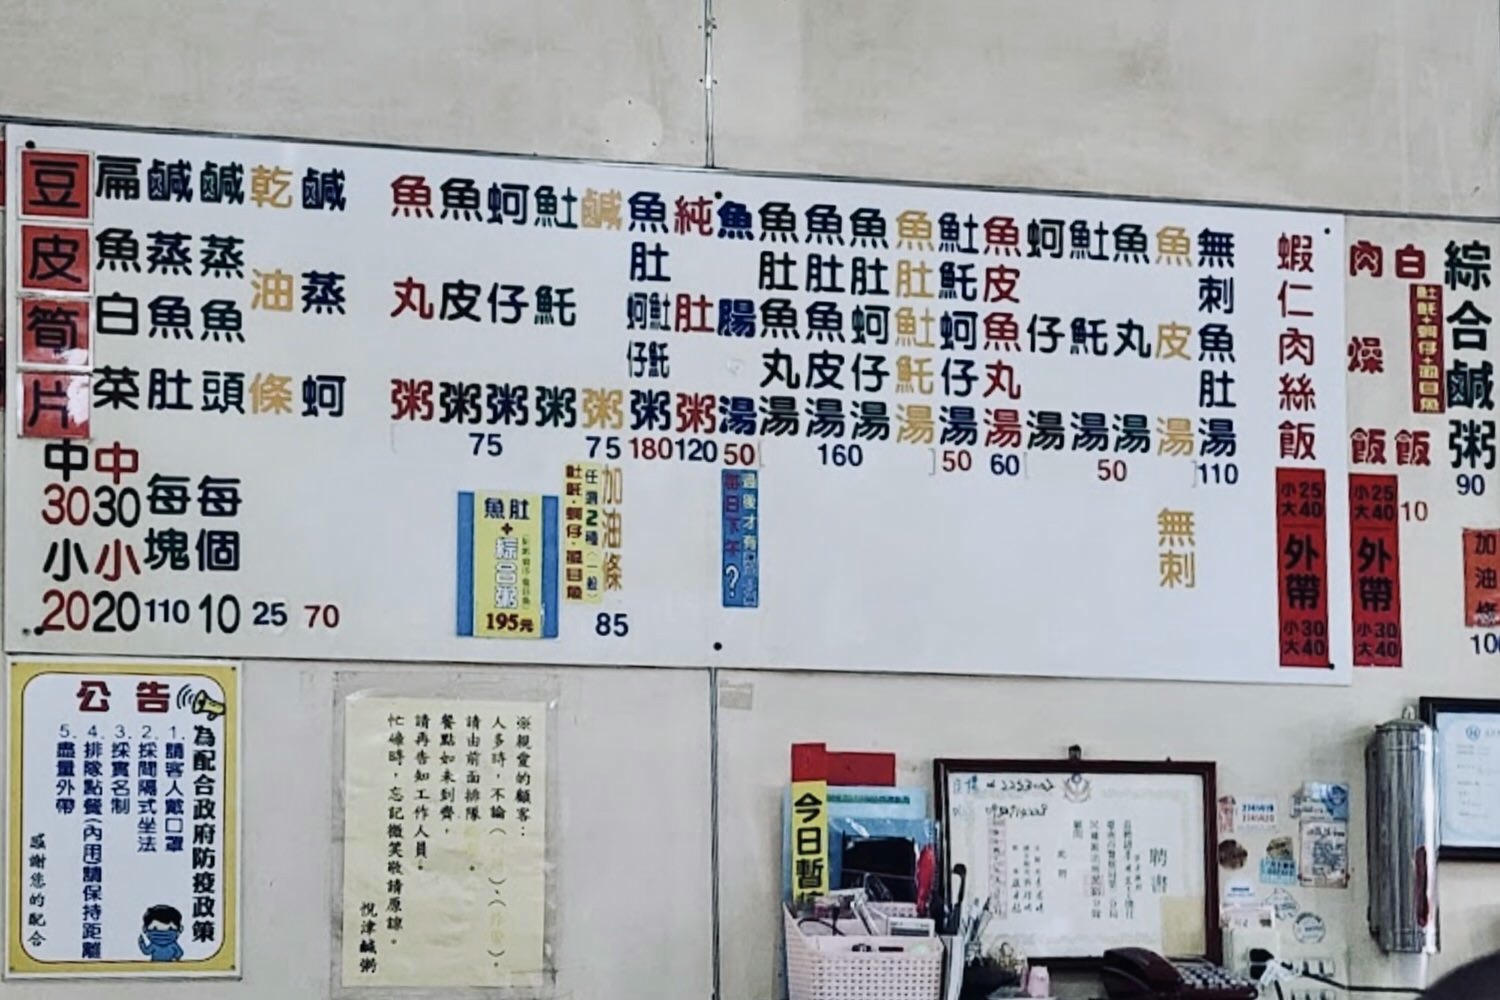 豆皮筍片
中30小20
扁魚白菜
中30小20
鹹蒸魚肚
每塊110
鹹蒸魚頭
每個10
乾油條
25
鹹蒸蚵
70
魚丸粥
魚皮粥
蚵仔粥
魚土魠粥
75
鹹粥
75
魚肚蚵仔魚土魠粥
180
純肚粥
120
魚腸湯
50
魚肚魚丸湯
魚肚魚皮湯
魚肚蚵仔湯
魚肚魚土魠湯
160
魚土魠蚵仔湯
50
魚皮魚丸湯
60
蚵仔湯
魚土魠湯
魚丸湯
50
魚皮湯
無刺
無刺魚肚湯
110
魚肚
+
綜合粥
195元
任選2種(一般)
加油條
85
每日下午
?
過後才有
蝦仁肉絲飯
小25
大40
外帶
小30
大40
肉燥飯
小25
大40
外帶
小30
大40
白飯
10
綜合鹹粥
90
加油條
公告
為配合政府防疫政策
1.請客人戴口罩
2.採間隔式坐法
3.採實名制
4.排隊點餐(內用)請保持距離
5.盡量外帶
感謝您的配合
※親愛的顧客:
人多時,不論
請由前面排隊
餐點如未到齊,
請再告知工作人員。
忙碌時,忘記微笑敬請原諒。
悅津鹹粥
今日暫
聘書